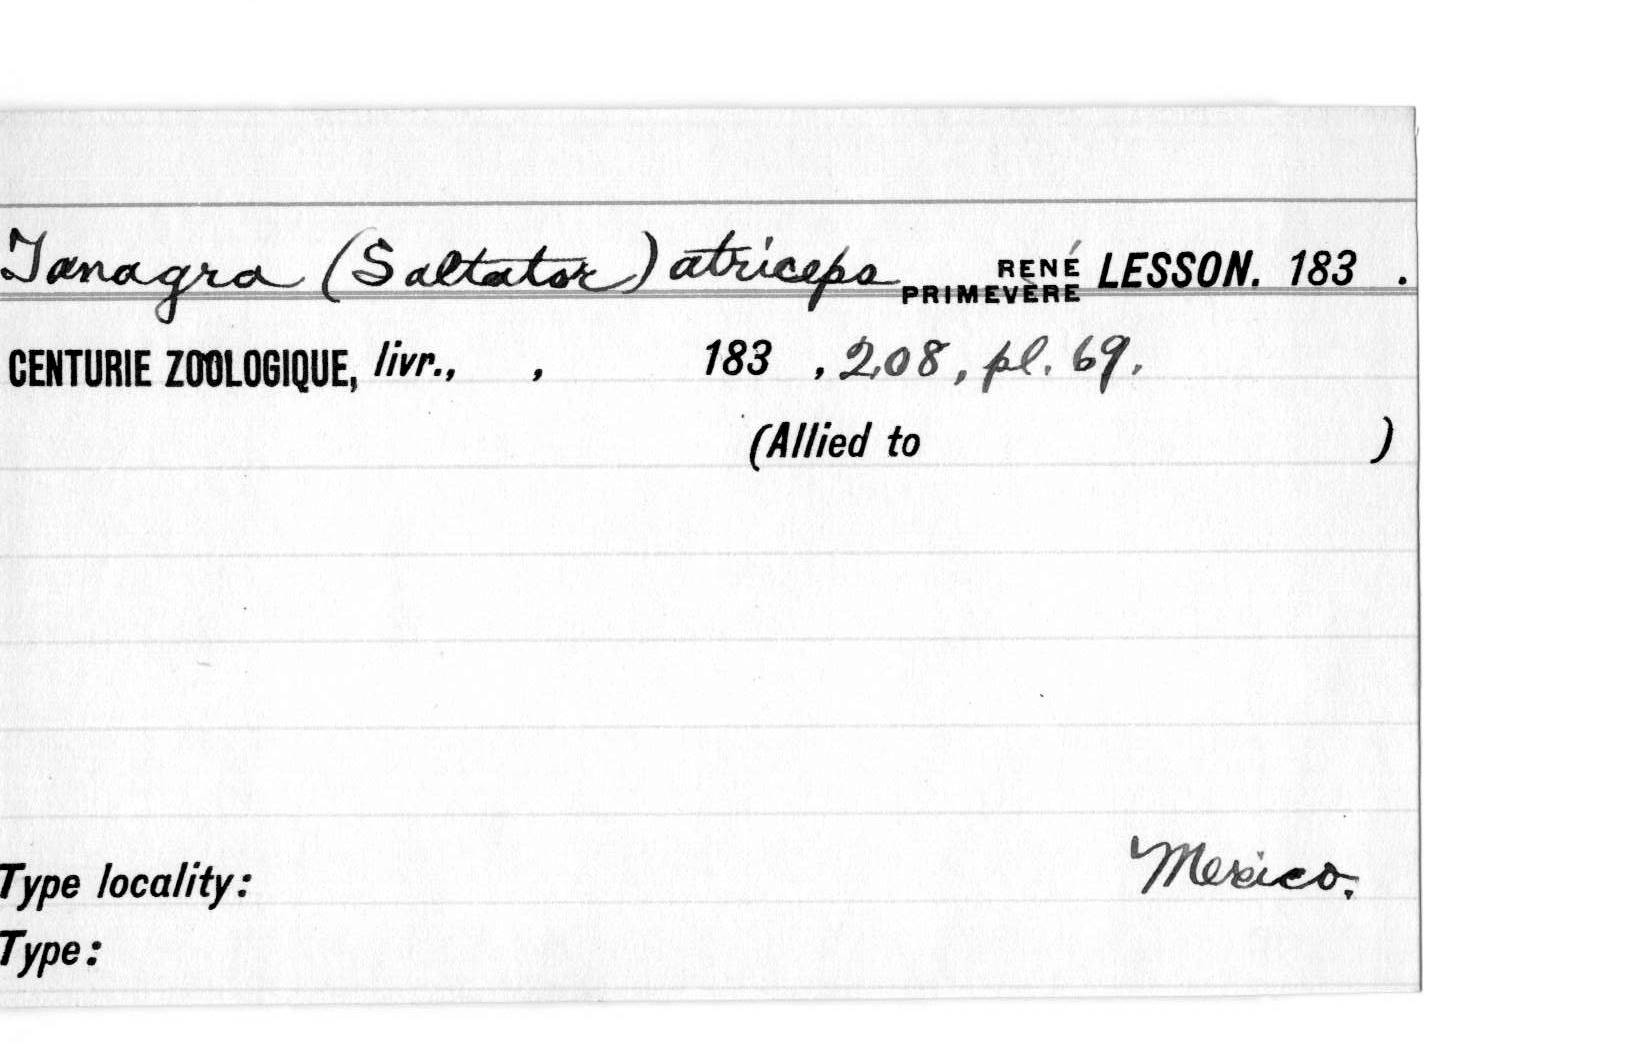 Tanagra (Saltator) atriceps RENÉ PRIMEVÈRE LESSON. 183 .
CENTURIE ZOOLOGIQUE, livr., , 183 , 208, pl. 69.
(Allied to )
Type locality: Mexico.
Type: